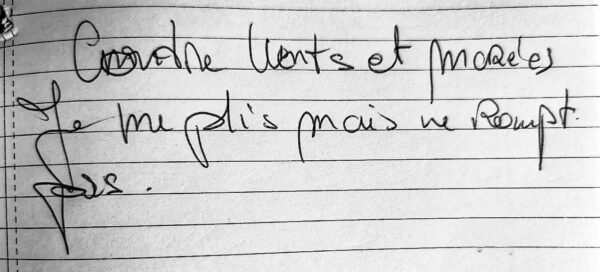 Contre Vents et marées
Je me plis mais ne Rompt
pas.